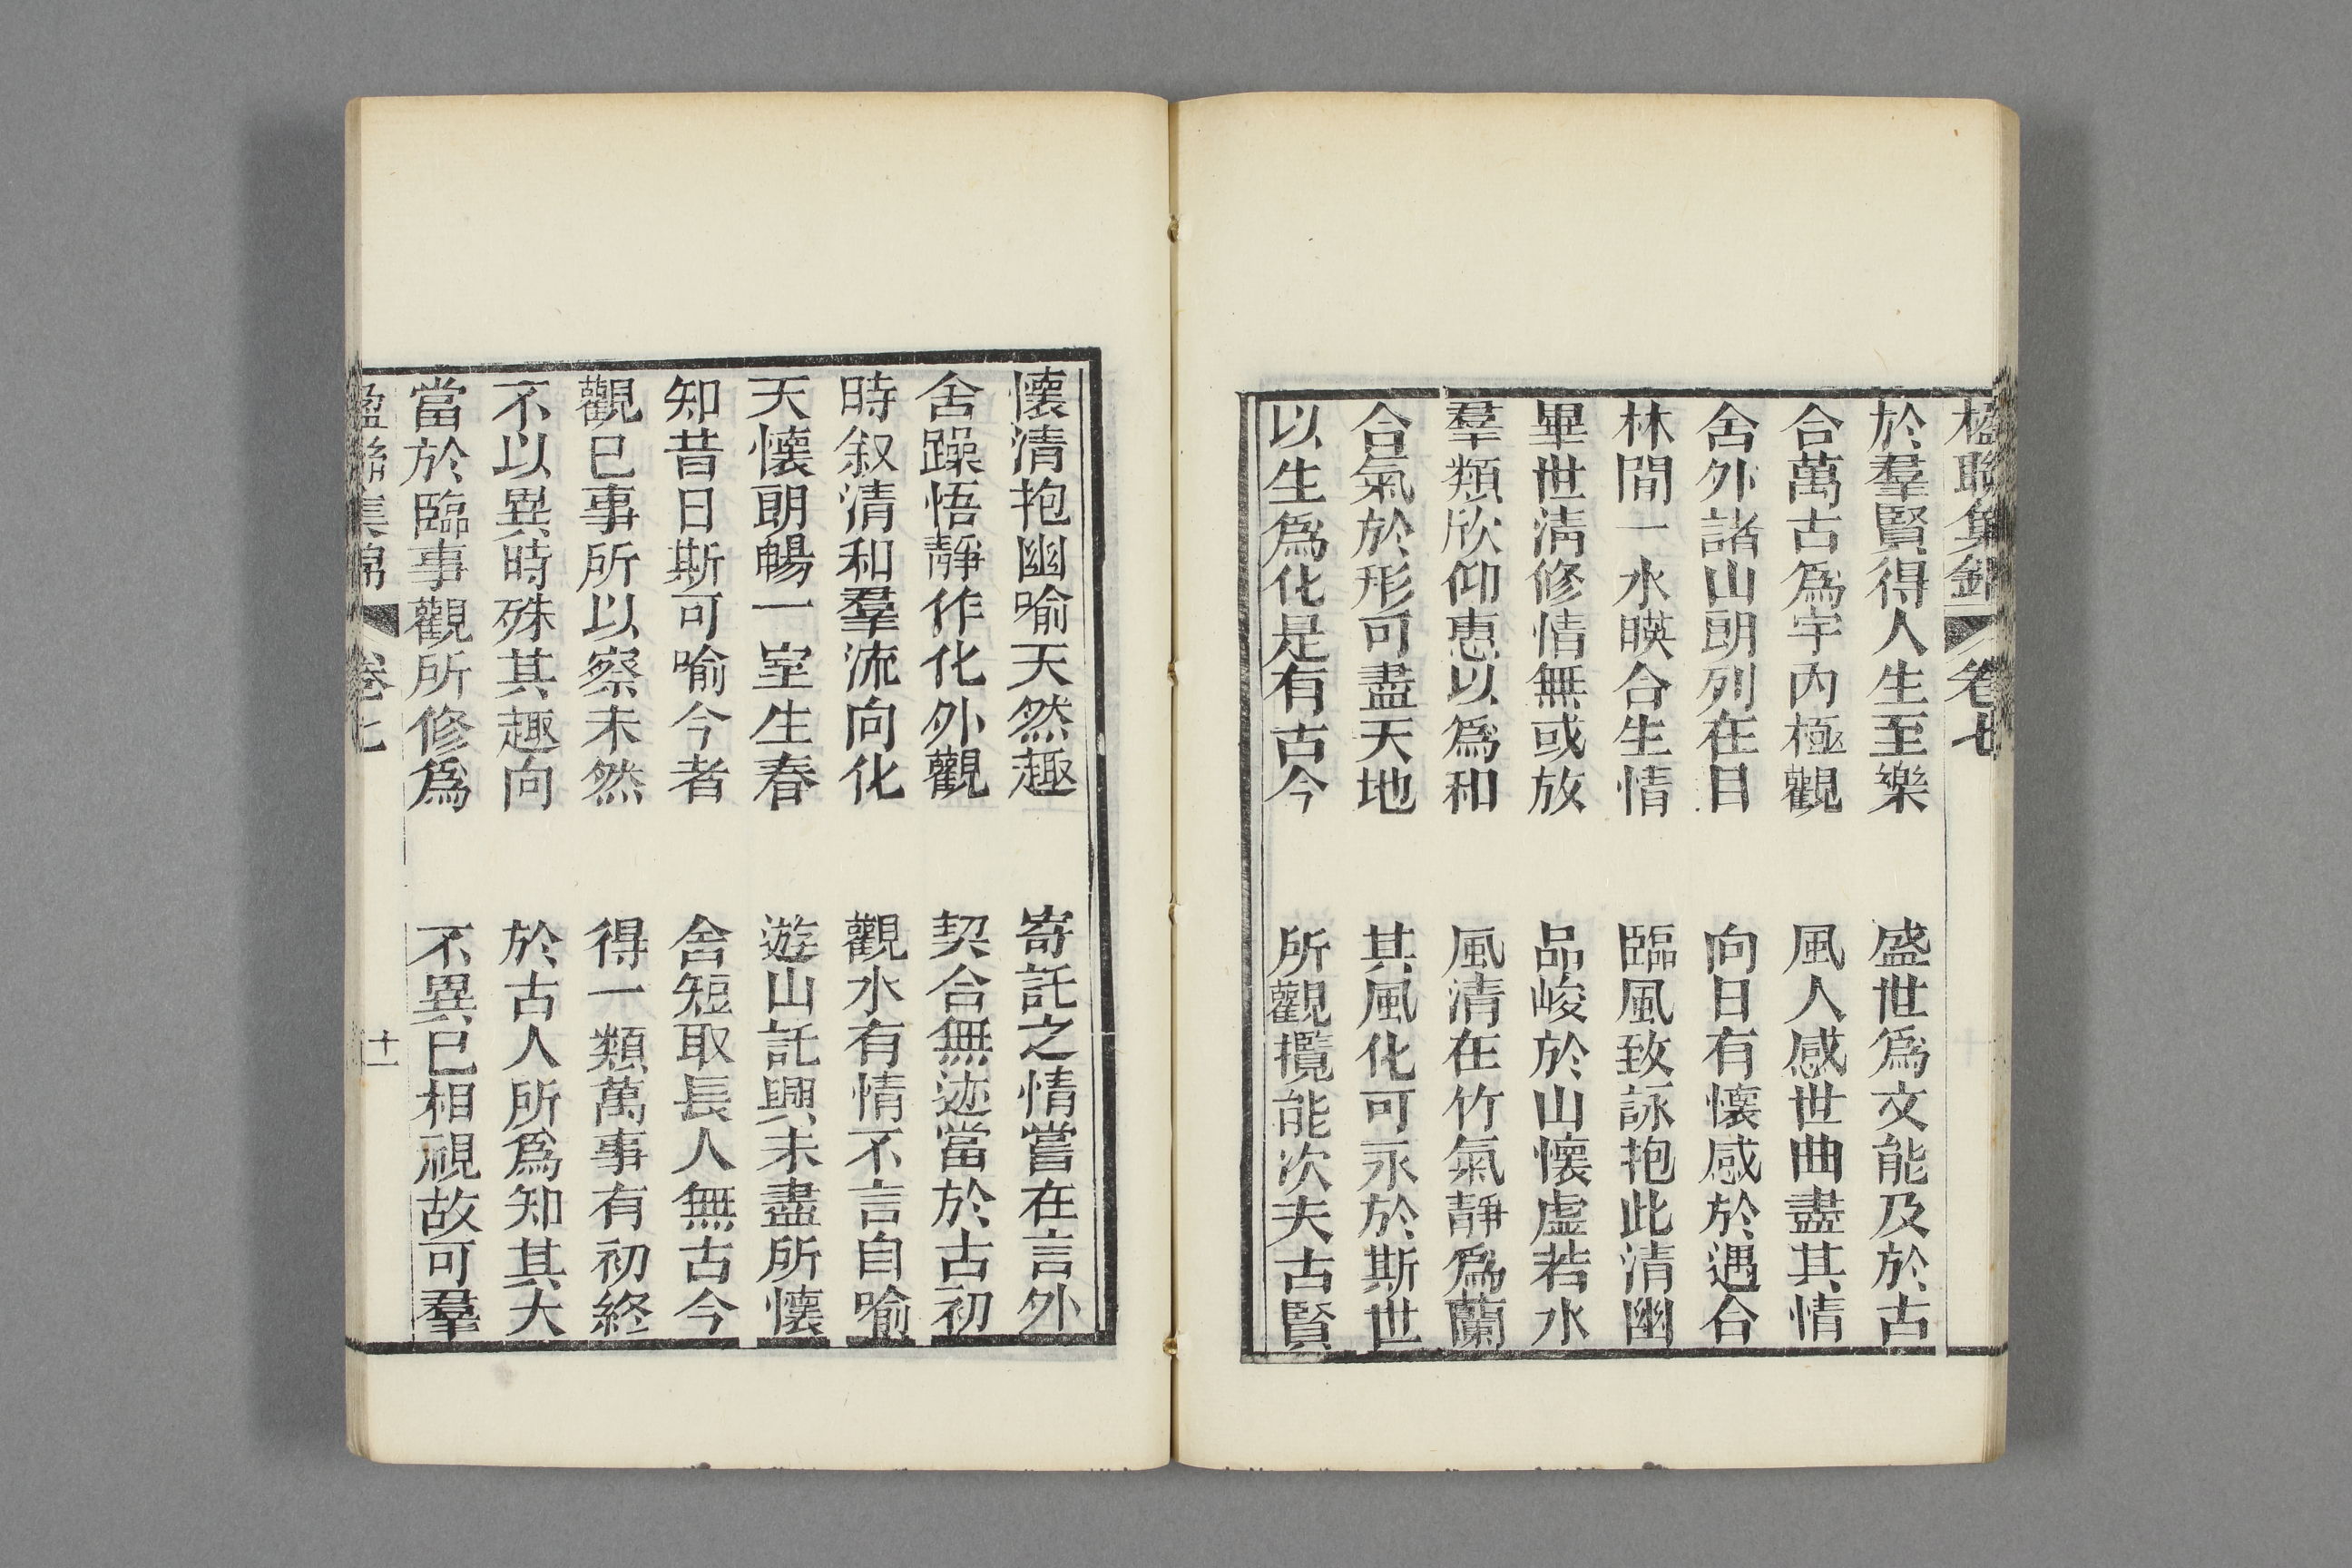 楹聯集錦 卷七
於羣賢得人生至樂 盛世爲文能及於古
合萬古爲宇內極觀 風人感世曲盡其情
舍外諸山朗列在目 向日有懷感於遇合
林間一水暎合生情 臨風致詠抱此清幽
畢世清修情無或放 品峻於山懷虛若水
羣類欣仰惠以爲和 風清在竹氣靜爲蘭
合氣於形可盡天地 其風化可永於斯世
以生爲化是有古今 所觀攬能次夫古賢
懷清抱幽喻天然趣 寄託之情嘗在言外
舍躁悟靜作化外觀 契合無迹當於古初
時叙清和羣流向化 觀水有情不言自喻
天懷朗暢一室生春 遊山託興未盡所懷
知昔日斯可喻今者 舍短取長人無古今
觀已事所以察未然 得一類萬事有初終
不以異時殊其趣向 於古人所爲知其大
當於臨事觀所修爲 不異已相視故可羣
楹聯集錦 卷七 十一